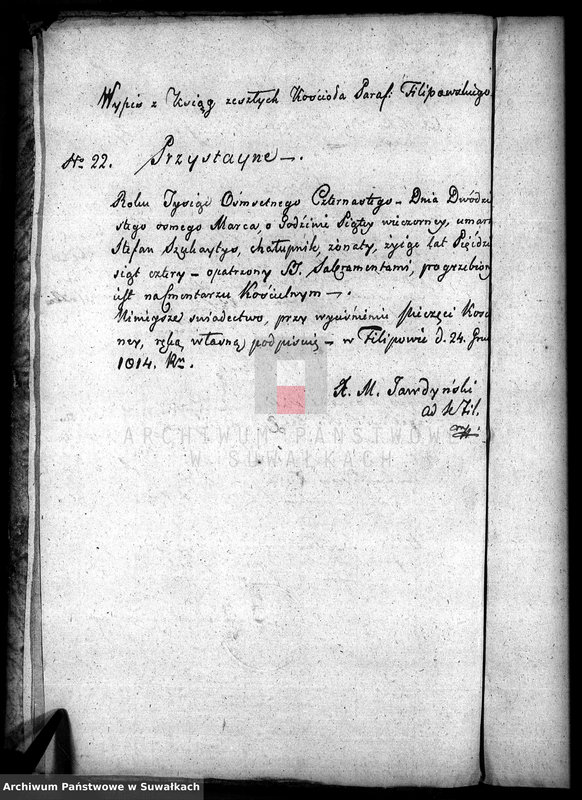 Wypis z Xsiąg zeszłych Kościoła Paraf: Filipowskiego
No 22. Przystayne —.
Roku Tysiąc Ośmsetnego Czternastego – Dnia Dwódzie
stego osmego Marca, o Godzinie Piątey wieczorney, umarł
Stefan Szykaytys, chałupnik, żonaty, żyiąc lat Pięćdzie
siąt cztery – opatrzony SS. Sakramentami, pogrzebiony
iest na Cmentarzu Kościelnym —.
Ninieysze swiadectwo, przy wyciśnieniu Pieczęci Kosciel
ney, ręką własną podpisuię – w Filipowie d. 24. Gru
1814. Rn.
X. M. Jawdyński
ARCHIWUM PAŃSTWOWE
W SUWAŁKACH
Archiwum Państwowe w Suwałkach